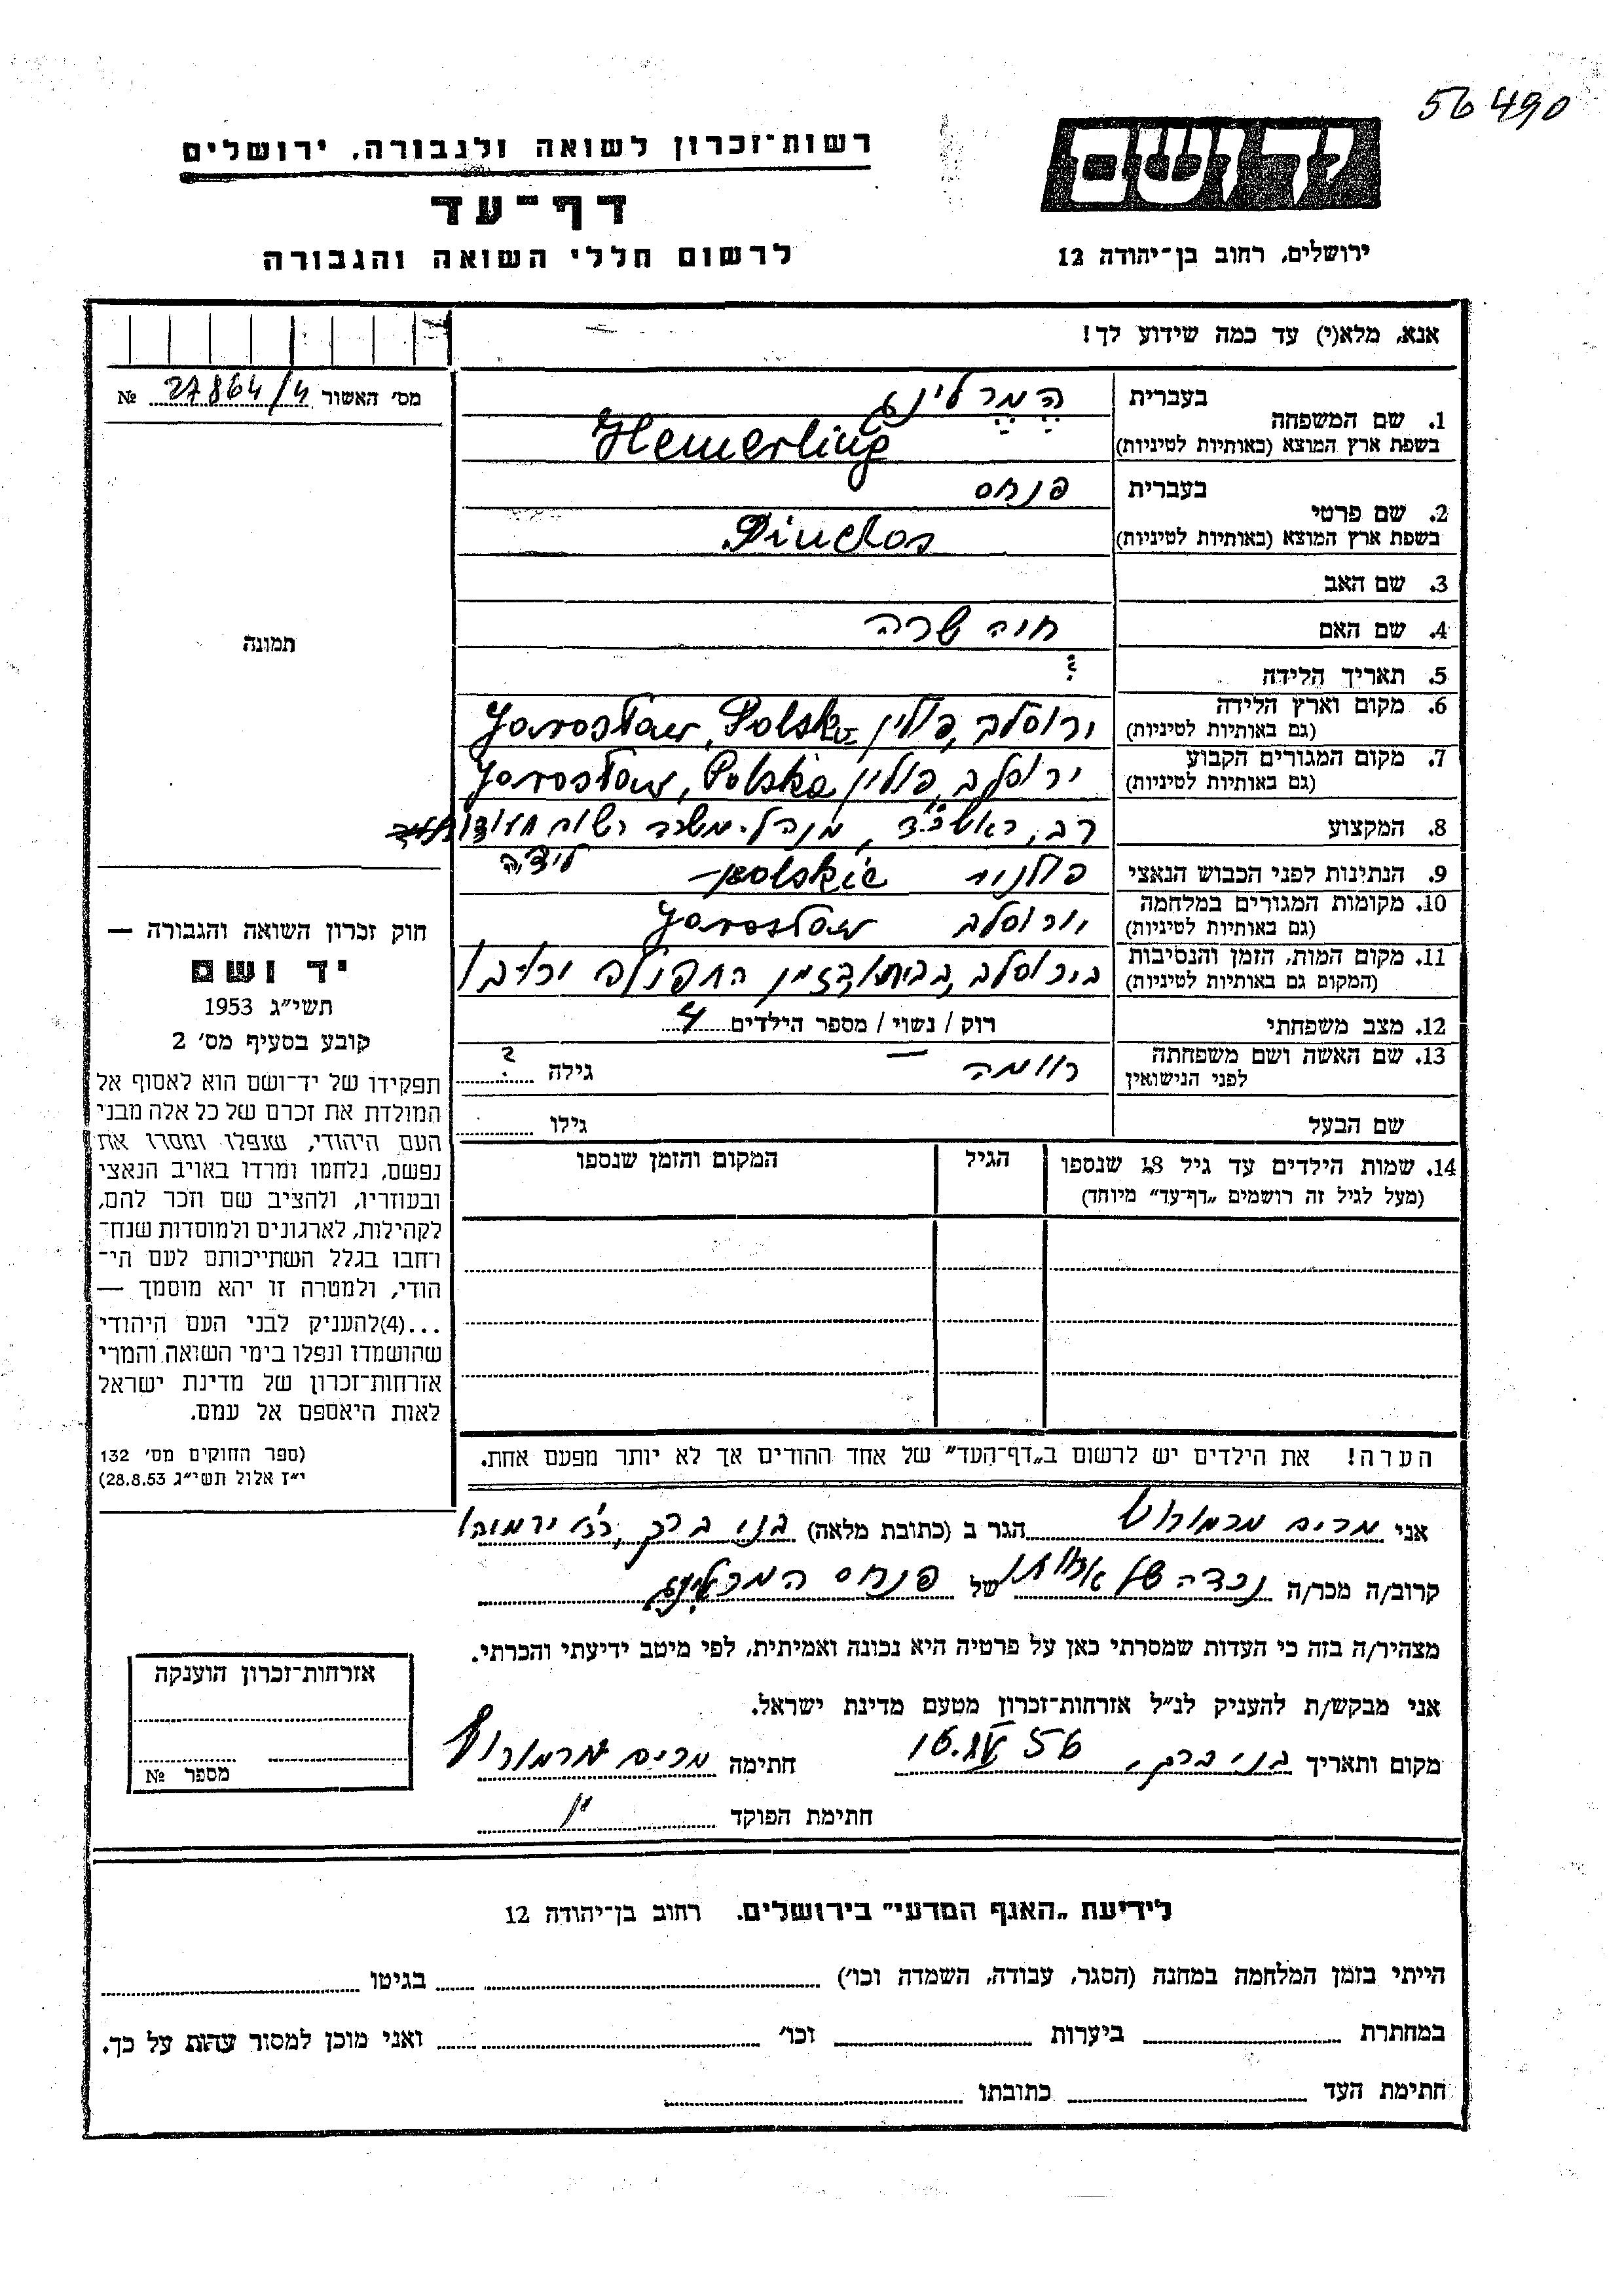 56490
ידושם
רשות־זכרון לשואה ולגבורה, ירושלים
דף־עד
לרשום חללי השואה והגבורה
ירושלים, רחוב בן־יהודה 12
אנא, מלא(י) עד כמה שידוע לך!
מס׳ האשור 27864/4 №
תמונה
1. שם המשפחה בעברית הֶמֶרלינג
בשפת ארץ המוצא (באותיות לטיניות) Hemerling
2. שם פרטי בעברית פנחס
בשפת ארץ המוצא (באותיות לטיניות) Pinchos
3. שם האב
4. שם האם חיה שרה
5. תאריך הלידה ?
6. מקום וארץ הלידה ירוסלב, פולין Jarosław, Polska
(גם באותיות לטיניות)
7. מקום המגורים הקבוע ירוסלב, פולין Jarosław, Polska
(גם באותיות לטיניות)
8. המקצוע רב, ראש, מנהל משרד רשום
לידה
9. הנתינות לפני הכבוש הנאצי פולנית polskie
10. מקומות המגורים במלחמה ירוסלב Jarosław
(גם באותיות לטיניות)
11. מקום המות, הזמן והנסיבות בירוסלב, בביתו בזמן
(המקום גם באותיות לטיניות)
12. מצב משפחתי רוק / נשוי / מספר הילדים 4
13. שם האשה ושם משפחתה לפני הנישואין — גילה ?
שם הבעל גילו
14. שמות הילדים עד גיל 18 שנספו הגיל המקום והזמן שנספו
(מעל לגיל זה רושמים „דף־עד״ מיוחד)
הערה! את הילדים יש לרשום ב„דף־העד״ של אחד ההורים אך לא יותר מפעם אחת.
חוק זכרון השואה והגבורה —
יד ושם
תשי״ג 1953
קובע בסעיף מס׳ 2
תפקידו של יד־ושם הוא לאסוף אל
המולדת את זכרם של כל אלה מבני
העם היהודי, שנפלו ומסרו את
נפשם, נלחמו ומרדו באויב הנאצי
ובעוזריו, ולהציב שם וזכר להם,
לקהילות, לארגונים ולמוסדות שנח־
רחבו בגלל השתייכותם לעם הי־
הודי, ולמטרה זו יהא מוסמך —
...(4)להעניק לבני העם היהודי
שהושמדו ונפלו בימי השואה והמרי
אזרחות־זכרון של מדינת ישראל
לאות היאספם אל עמם.
(ספר החוקים מס׳ 132
י״ז אלול תשי״ג 28.8.53)
אני מרים מרמורש הגר ב (כתובת מלאה) בני ברק,
קרוב/ה מכר/ה נכדה של אחותו של פנחס המרלינג
מצהיר/ה בזה כי העדות שמסרתי כאן על פרטיה היא נכונה ואמיתית, לפי מיטב ידיעתי והכרתי.
אני מבקש/ת להעניק לנ״ל אזרחות־זכרון מטעם מדינת ישראל.
מקום ותאריך בני ברק, 56 חתימה מרים מרמורש
חתימת הפוקד
אזרחות־זכרון הוענקה
מספר №
לידיעת „האגף המדעי״ בירושלים, רחוב בן־יהודה 12
הייתי בזמן המלחמה במחנה (הסגר, עבודה, השמדה וכו׳) בגיטו
במחתרת ביערות וכו׳ ואני מוכן למסור עדות על כך.
חתימת העד כתובתו